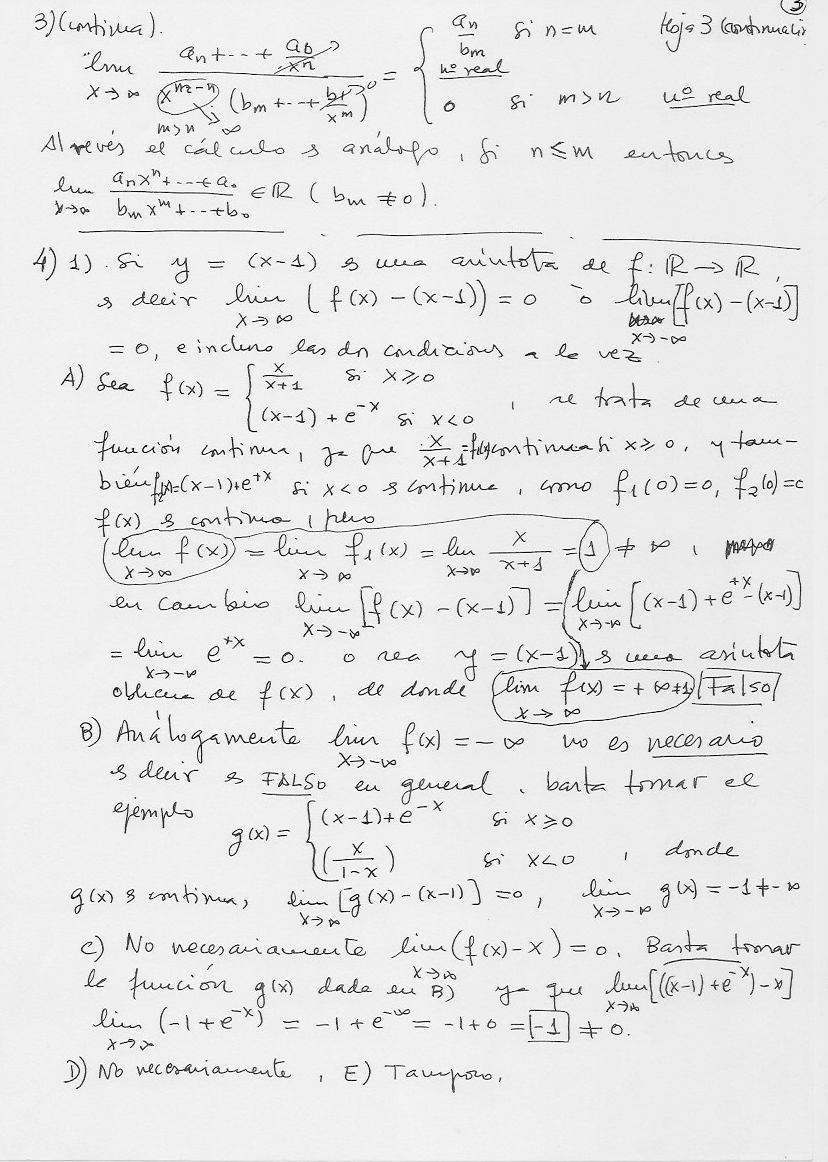 3
3) (continua). Hoja 3 (continuación)
lim x→∞ (aₙ + ··· + a₀/xⁿ) / (x^(m−n) (bₘ + ··· + b₁/x^m)) = { aₙ/bₘ si n = m nº real
m>n ∞ 0 si m>n nº real
Al revés el cálculo es análogo, si n ≤ m entonces
lim x→∞ (aₙxⁿ + ··· + a₀)/(bₘx^m + ··· + b₀) ∈ ℝ (bₘ ≠ 0).
4) 1). Si y = (x-1) es una asíntota de f: ℝ → ℝ,
es decir lim x→∞ (f(x) − (x-1)) = 0 ó lim x→-∞ [f(x) − (x-1)]
= 0, e incluso las dos condiciones a la vez.
A) Sea f(x) = { x/(x+1) si x ≥ 0
(x-1) + e^(-x) si x<0 , se trata de una
función continua, ya que x/(x+1) = f₁(x) continua si x ≥ 0, y tam-
bién f₂(x)=(x-1)+e^(+x) si x<0 es continua, como f₁(0)=0, f₂(0)=0
f(x) es continua, pero
lim x→∞ f(x) = lim x→∞ f₁(x) = lim x→∞ x/(x+1) = 1 ≠ ∞,
en cambio lim x→-∞ [f(x) − (x-1)] = lim x→-∞ [(x-1) + e^(+x) − (x-1)]
= lim x→-∞ e^(+x) = 0. o sea y = (x-1) es una asíntota
oblicua de f(x), de donde lim x→∞ f(x) = +∞ Falso
B) Análogamente lim x→-∞ f(x) = -∞ no es necesario
es decir es FALSO en general, basta tomar el
ejemplo g(x) = { (x-1)+e^(-x) si x ≥ 0
(x/(1-x)) si x<0 , donde
g(x) es continua, lim x→∞ [g(x) − (x-1)] = 0, lim x→-∞ g(x) = -1 ≠ -∞
C) No necesariamente lim x→∞ (f(x) − x) = 0. Basta tomar
la función g(x) dada en B) ya que lim x→∞ [((x-1)+e^(-x)) − x]
lim x→∞ (-1 + e^(-x)) = -1 + e^(-∞) = -1+0 = -1 ≠ 0.
D) No necesariamente, E) Tampoco.